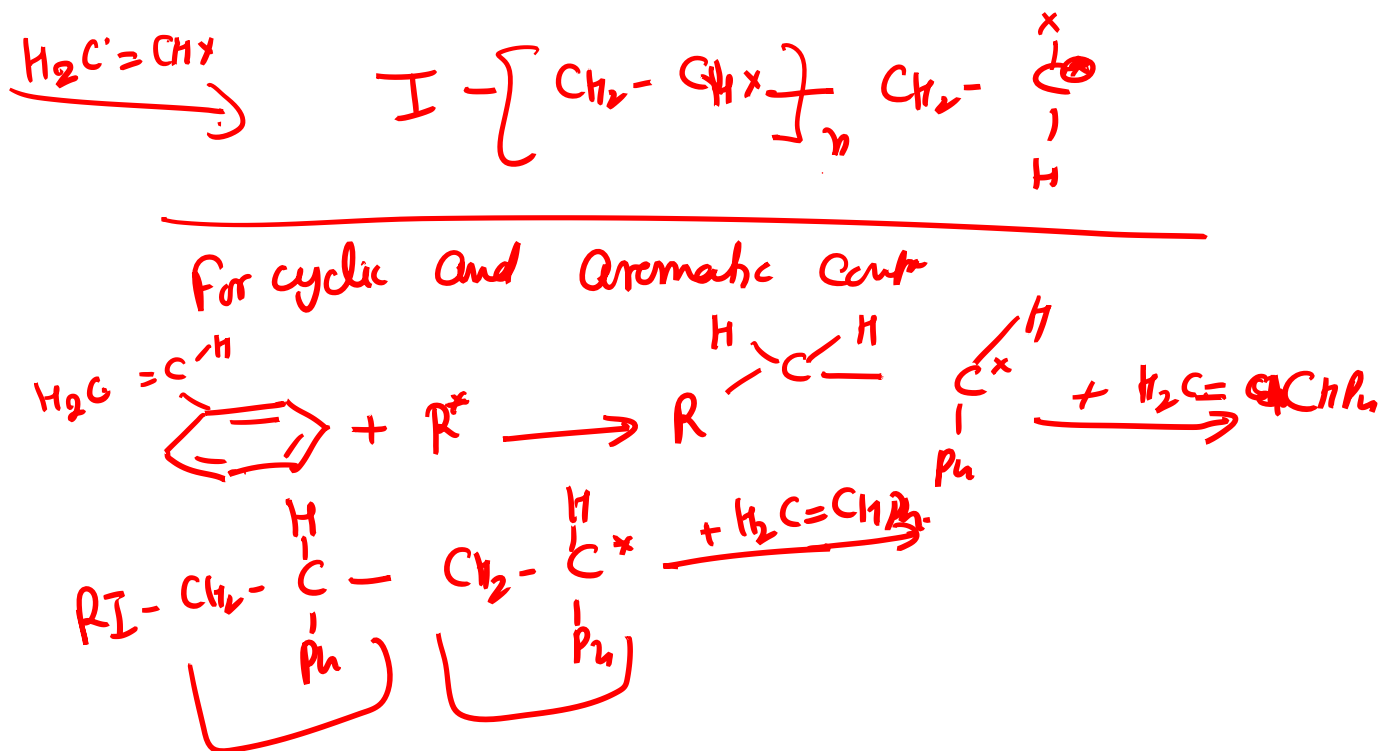 H₂C=CHX → I-[CH₂-CHX]ₙ CH₂-C*(X)(H)
For cyclic and aromatic
H₂C=C-H + R* → R-C(H)(H)-C*(H)(Ph) + H₂C=CHPh →
RI-CH₂-C(H)(Ph)-CH₂-C*(H)(Ph) + H₂C=CHPh →